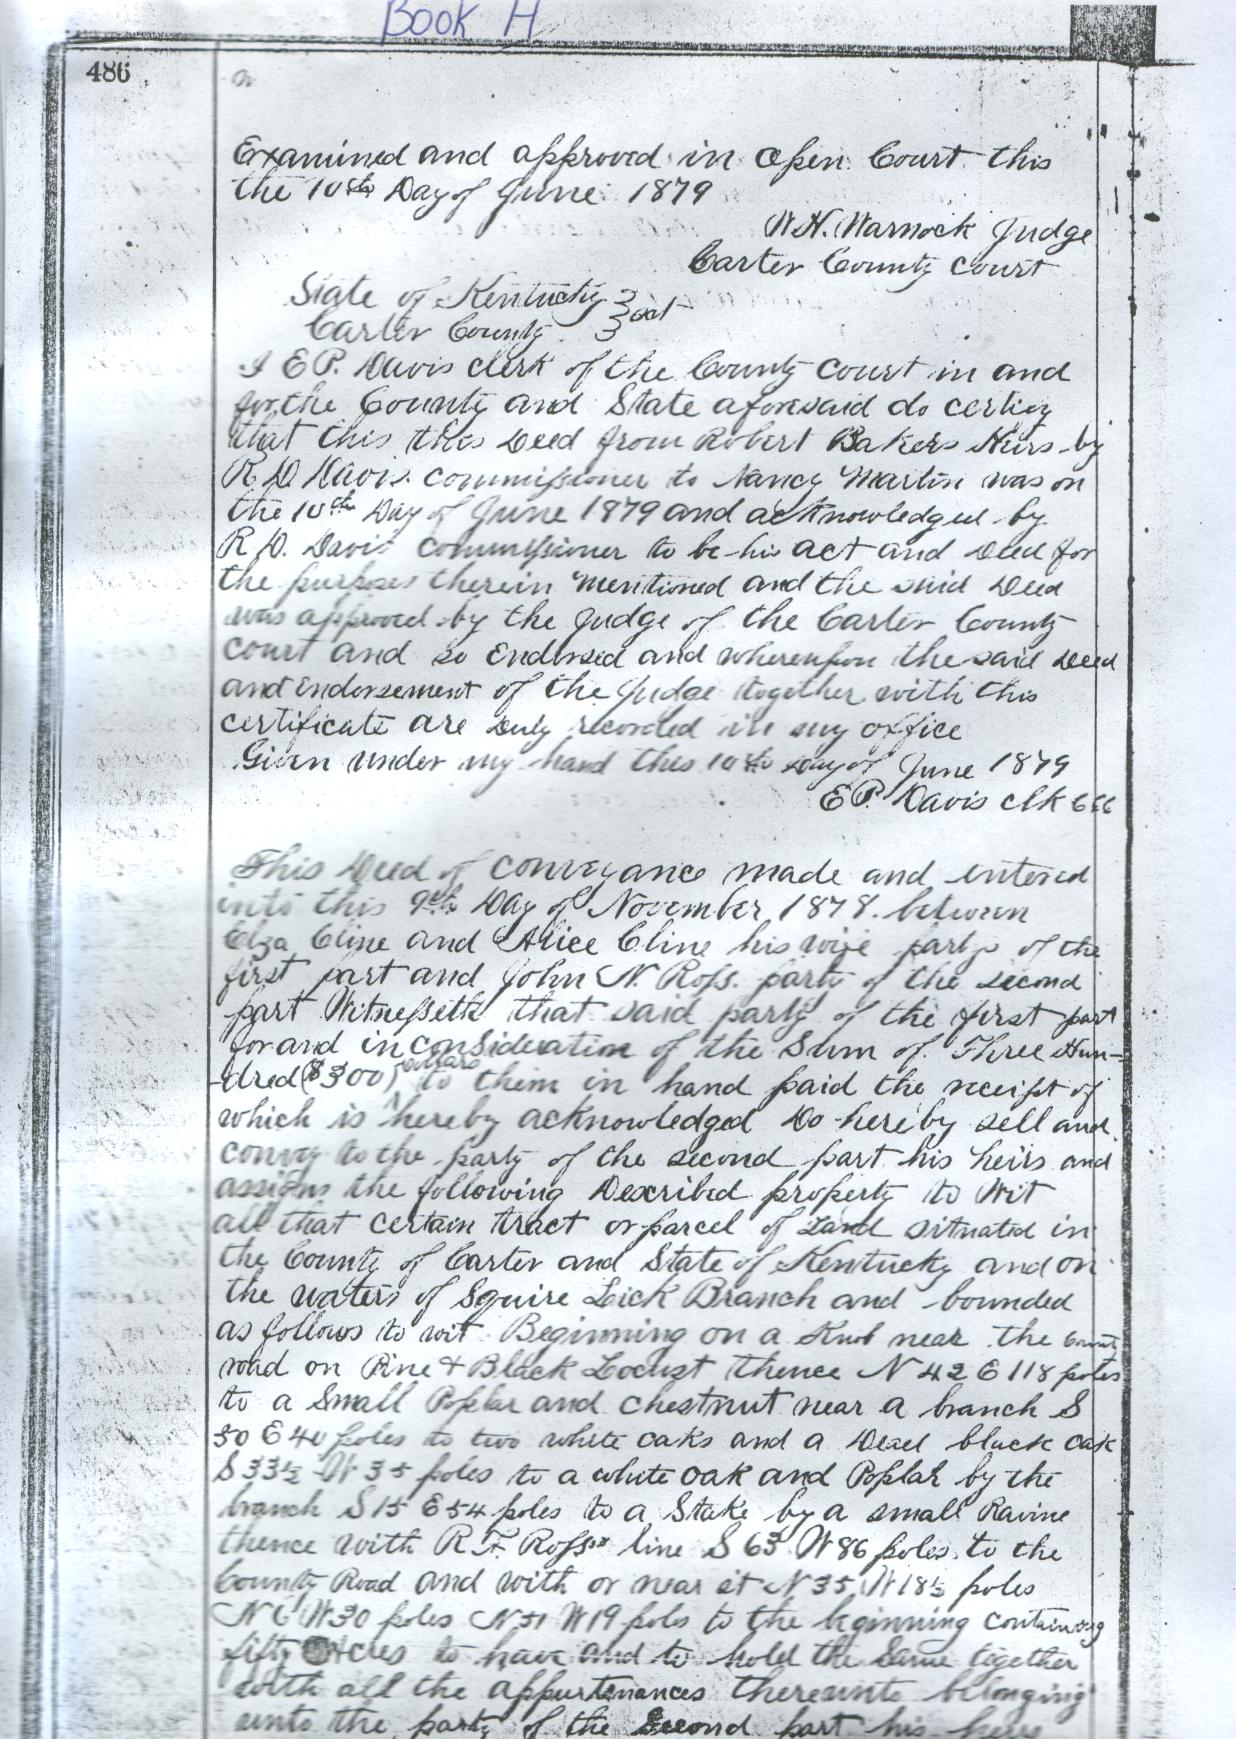 Book H
486
Examined and approved in open Court this
the 10th Day of June 1879
W.H. Warnock Judge
Carter County Court
State of Kentucky
Carter County } sct
I E P. Davis clerk of the County Court in and
for the County and State aforesaid do certify
that this this Deed from Robert Bakers Heirs by
R D Davis commissioner to Nancy Martin was on
the 10th Day of June 1879 and acknowledged by
R D. Davis commissioner to be his act and Deed for
the purposes therein mentioned and the said Deed
was approved by the Judge of the Carter County
court and so Endorsed and whereupon the said Deed
and Endorsement of the Judge together with this
certificate are Duly recorded in my office
Given under my hand this 10th Day of June 1879
E P. Davis clk
This Deed of conveyance made and entered
into this 9th Day of November 1878. between
Elza Cline and Alice Cline his wife party of the
first part and John N. Ross. party of the second
part Witnesseth that said party of the first part
for and in consideration of the Sum of Three Hun-
-dred ($300) Dollars to them in hand paid the receipt of
which is hereby acknowledged Do hereby sell and
convey to the party of the second part his heirs and
assigns the following Described property to Wit
all that certain tract or parcel of Land situated in
the County of Carter and State of Kentucky and on
the waters of Squire Lick Branch and bounded
as follows to wit Beginning on a Knob near the
road on Pine & Black Locust thence N 42 E 118 poles
to a Small Poplar and chestnut near a branch S
50 E 40 poles to two white oaks and a Dead black oak
S 33½ W 35 poles to a white oak and Poplar by the
branch S 15 E 54 poles to a Stake by a small Ravine
thence with R. F. Ross' line S 63 W 86 poles to the
County Road and with or near it N 35 W 18½ poles
N 6 W 30 poles N 51 W 19 poles to the beginning containing
fifty Acres to have and to hold the Same together
with all the appurtenances thereunto belonging
unto the party of the Second part his heirs